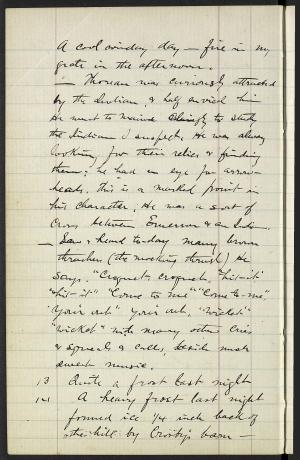 A cool windy day – fire in my
grate in the afternoon.
– Thoreau was curiously attracted
by the Indian, & half envied him
He went to Maine to study
the Indian I suspect. He was always
looking for their relics & finding
them; he had an eye for arrow-
heads. this is a marked point in
his character; He was a sort of
Cross between Emerson & an Indian.
– Saw & heard to-day many brown
thrasher (the mocking thrush) He
says, "Croquet, croquet, "hit-it"
"hit-it" "Come to me" "Come to me",
"You're out" you're out, "wicket"
"wicket" with many other cries
& squeals & calls, beside much
sweet music.
13 Quite a frost last night
14 A heavy frost last night
formed ice 1/4 inch back of
the hill by Crosby's barn –